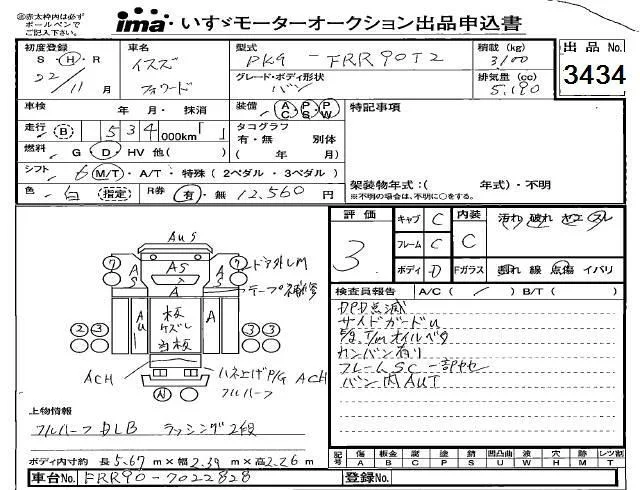 ※赤太枠内は必ず
ボールペンで
ご記入下さい。
ima いすゞモーターオークション出品申込書
初度登録 S・H・R 22/11月
車名 イスズ フォワード
型式 PKG-FRR90T2
積載(kg) 3100
出品No. 3434
グレード・ボディ形状 バン
排気量(cc) 5,190
車検 年 月・抹消
装備 AC PS PW
特記事項
走行(B) 534,000km「 」
タコグラフ 有・無 別体 ( 年 月)
燃料 G・D・HV 他( )
シフト 6 M/T・A/T・特殊(2ペダル・3ペダル)
架装物年式:( 年式)・不明
※不明の場合は、不明に○をする。
色 白 (指定) R券 有・無 12,560円
評価 3
キャブ C
フレーム C
ボディ D
内装 C
汚れ 破れ ヤエ スレ
Fガラス 割れ 線 点傷 イバリ
検査員報告 A/C( / ) B/T( )
DPD点滅
サイドガードU
E/g, T/m オイルベタ
カンバン有り
フレームSC 一部ヤセ
バン内AUT
AUS
7 7
AS AS AS
A
ドア外LM
テープ補修
AU A
板
ケズレ
合板
2 3 3 3
ACH
ハネ上ゲP/G ACH
フルハーフ
N
上物情報
フルハーフDLB ラッシング2段
ボディ内寸約 長5.67m×幅2.39m×高2.26m
記号 傷A 板金B 腐C 塗P 錆S 凹凸曲U 波W 穴H 跡M レツ割T
車台No. FRR90-7022828
登録No.